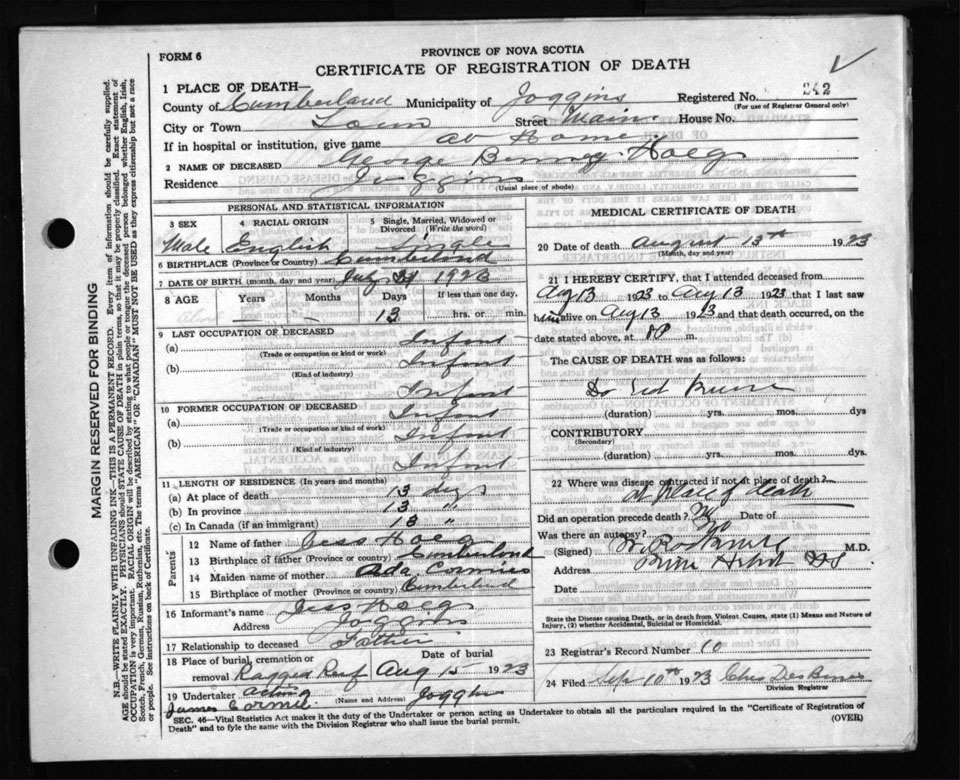 FORM 6
PROVINCE OF NOVA SCOTIA
CERTIFICATE OF REGISTRATION OF DEATH
1 PLACE OF DEATH—
County of Cumberland Municipality of Joggins Registered No. 342
(For use of Registrar General only)
City or Town Town Street Main House No.
If in hospital or institution, give name at Home
2 NAME OF DECEASED George Hoeg
Residence Joggins
(Usual place of abode)
PERSONAL AND STATISTICAL INFORMATION
3 SEX 4 RACIAL ORIGIN 5 Single, Married, Widowed or Divorced (Write the word)
Male English Single
6 BIRTHPLACE (Province or Country) Cumberland
7 DATE OF BIRTH (month, day and year) July 1923
8 AGE Years Months Days If less than one day,
— — 13 hrs. or min.
9 LAST OCCUPATION OF DECEASED
(a) Infant
(Trade or occupation or kind or work)
(b) Infant
(Kind of industry)
Infant
10 FORMER OCCUPATION OF DECEASED
(a) Infant
(Trade or occupation or kind of work)
(b) Infant
(Kind of industry)
Infant
11 LENGTH OF RESIDENCE (In years and months)
(a) At place of death 13 days
(b) In province 13 "
(c) In Canada (if an immigrant) 13 "
Parents
12 Name of father Jess Hoeg
13 Birthplace of father (Province or country) Cumberland
14 Maiden name of mother Ada Cormier
15 Birthplace of mother (Province or Country) Cumberland
16 Informant's name Jess Hoeg
Address Joggins
17 Relationship to deceased Father
18 Place of burial, cremation or removal Ragged Reef Date of burial Aug 15 1923
19 Undertaker acting James Cormie (Name and Address) Joggins
MEDICAL CERTIFICATE OF DEATH
20 Date of death August 13th 1923
(Month, day and year)
21 I HEREBY CERTIFY, that I attended deceased from
Ag 13 1923 to Aug 13 1923 that I last saw
him alive on Aug 13 1923 and that death occurred, on
date stated above, at m.
The CAUSE OF DEATH was as follows:
(duration) yrs. mos. dys
CONTRIBUTORY
(Secondary)
(duration) yrs. mos. dys.
22 Where was disease contracted if not at place of death?
at place of death
Did an operation precede death? No Date of
Was there an autopsy? No
(Signed) M.D.
Address River Hebert NS
Date
State the Disease causing Death, or in death from Violent Causes, state (1) Means and Nature of Injury, (2) whether Accidental, Suicidal or Homicidal.
23 Registrar's Record Number 10
24 Filed Sep 10th 1923 Chas Des Barres
Division Registrar
SEC. 46—Vital Statistics Act makes it the duty of the Undertaker or person acting as Undertaker to obtain all the particulars required in the "Certificate of Registration of
Death" and to fyle the same with the Division Registrar who shall issue the burial permit.
(OVER)
MARGIN RESERVED FOR BINDING
N.B.—WRITE PLAINLY WITH UNFADING INK—THIS IS A PERMANENT RECORD. Every item of information should be carefully supplied.
AGE should be stated EXACTLY. PHYSICIANS should STATE CAUSE OF DEATH in plain terms, so that it may be properly classified. Exact statement of
OCCUPATION is very important. RACIAL ORIGIN will be described by stating to what people or tongue the deceased person belonged whether English, Irish,
Scotch, French, German, Russian, Ruthenian, etc. The terms "AMERICAN" OR "CANADIAN" MUST NOT BE USED as they express citizenship but not a race
or people. See instructions on back of Certificate.